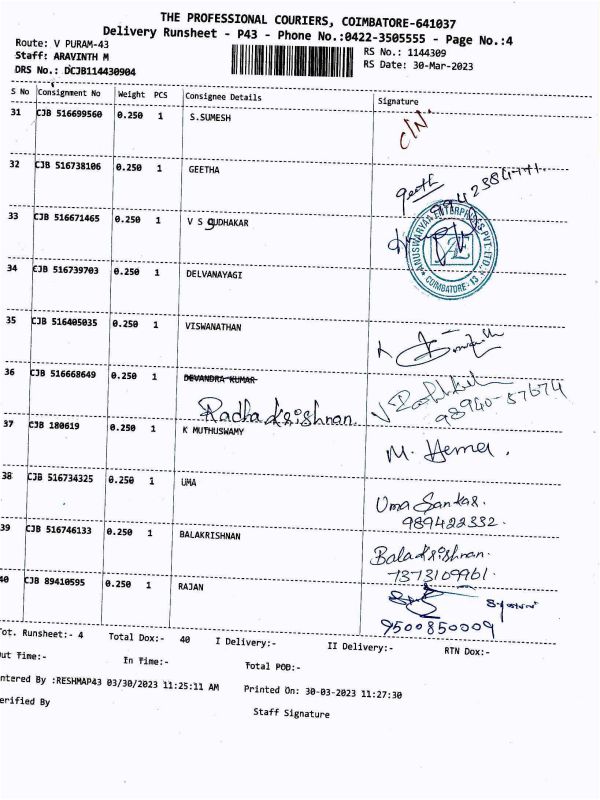 THE PROFESSIONAL COURIERS, COIMBATORE-641037
Delivery Runsheet - P43 - Phone No.:0422-3505555 - Page No.:4
Route: V PURAM-43
RS No.: 1144309
Staff: ARAVINTH M
RS Date: 30-Mar-2023
DRS No.: DCJB114430904
S No Consignment No Weight PCS Consignee Details Signature
31 CJB 516699560 0.250 1 S.SUMESH C/N.
32 CJB 516738106 0.250 1 GEETHA geeth
33 CJB 516671465 0.250 1 V S SUDHAKAR
ANUSWARYAA ENTERPRISES PVT. LTD.
COIMBATORE - 13
34 CJB 516739703 0.250 1 DELVANAYAGI
35 CJB 516405035 0.250 1 VISWANATHAN
36 CJB 516668649 0.250 1 DEVANDRA KUMAR
Radhakrishnan. 98940-57674
37 CJB 180619 0.250 1 K MUTHUSWAMY M. Hema.
38 CJB 516734325 0.250 1 UMA Uma Sankar.
989422332.
39 CJB 516746133 0.250 1 BALAKRISHNAN Balakrishnan.
7373109961.
40 CJB 89410595 0.250 1 RAJAN
9500850009
Tot. Runsheet:- 4 Total Dox:- 40 I Delivery:- II Delivery:- RTN Dox:-
Out Time:- In Time:- Total POD:-
ntered By :RESHMAP43 03/30/2023 11:25:11 AM Printed On: 30-03-2023 11:27:30
erified By Staff Signature